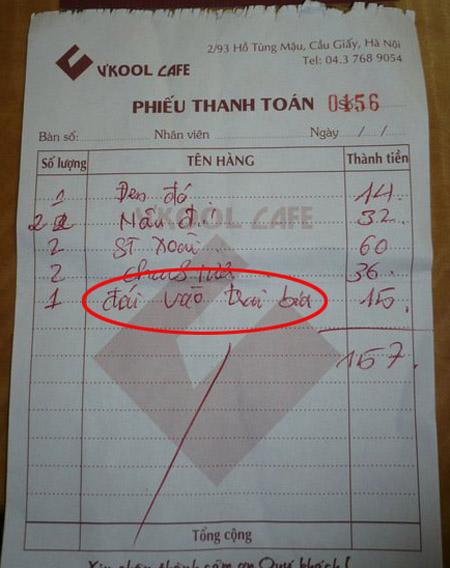 V'KOOL CAFE
2/93 Hồ Tùng Mậu, Cầu Giấy, Hà Nội
Tel: 04.3 768 9054
PHIẾU THANH TOÁN
Bàn số: Nhân viên Ngày / /
Số lượng TÊN HÀNG Thành tiền
1 Đen đá 14
2 Nâu đá 32
2 ST xoài 60
2 36
1 đái vào trai bia 15
157
V'KOOL CAFE
Tổng cộng
Xin chân thành cảm ơn Quý khách!